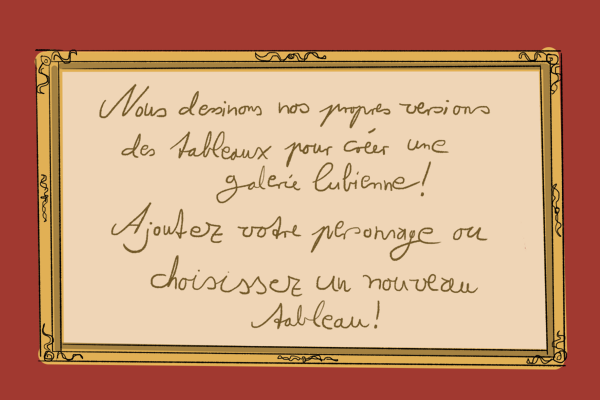 Nous dessinons nos propres versions
des tableaux pour créer une
galerie lubienne!
Ajoutez votre personnage ou
choisissez un nouveau
tableau!